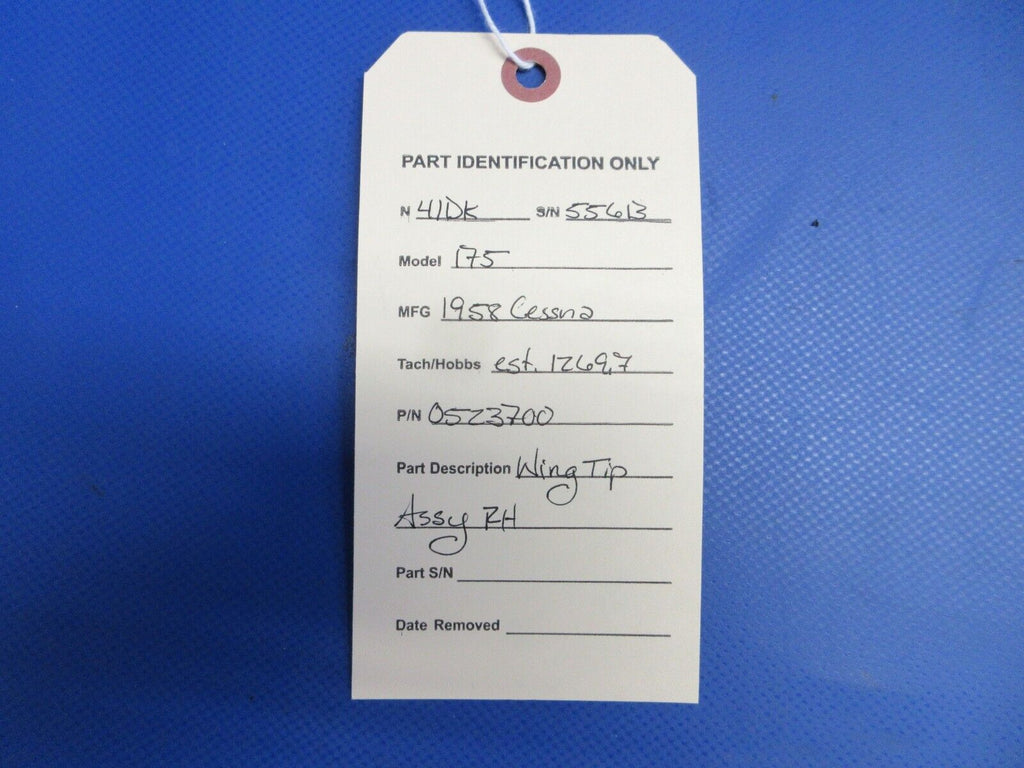 PART IDENTIFICATION ONLY
N 41DK S/N 55613
Model 175
MFG 1958 Cessna
Tach/Hobbs est. 1269.7
P/N 0523700
Part Description Wing Tip
Assy RH
Part S/N
Date Removed